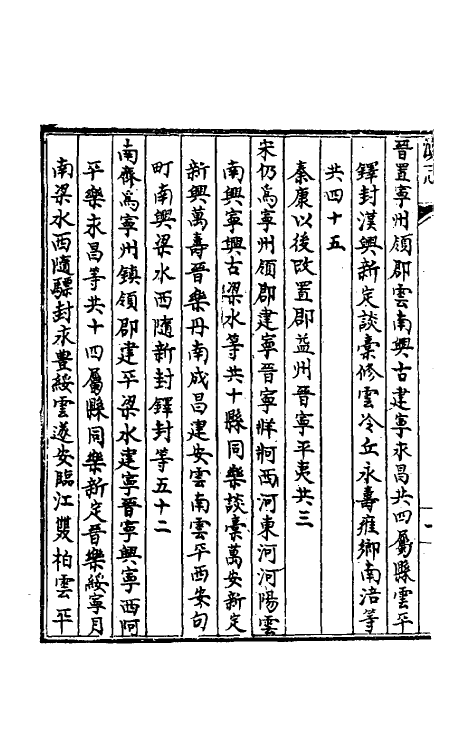 晉置寧州領郡雲南興古建寧永昌共四屬縣雲平
鐸封漢興新定談稾修雲冷丘永壽雍鄉南涪等
共四十五
秦康以後改置郡益州晉寧平夷共三
宋仍爲寧州領郡建寧晉寧牂牁西河東河河陽雲
南興寧興古梁水等共十縣同樂談稾萬安新定
新興萬壽晉樂丹南成昌建安雲南雲平西安句
町南興梁水西隨新封鐸封等五十二
南齊爲寧州鎮領郡建平梁水建寧晉寧興寧西阿
平樂永昌等共十四屬縣同樂新定晉樂綏寧月
南梁水西隨驃封永豊綏雲遂安臨江䨇柏雲平